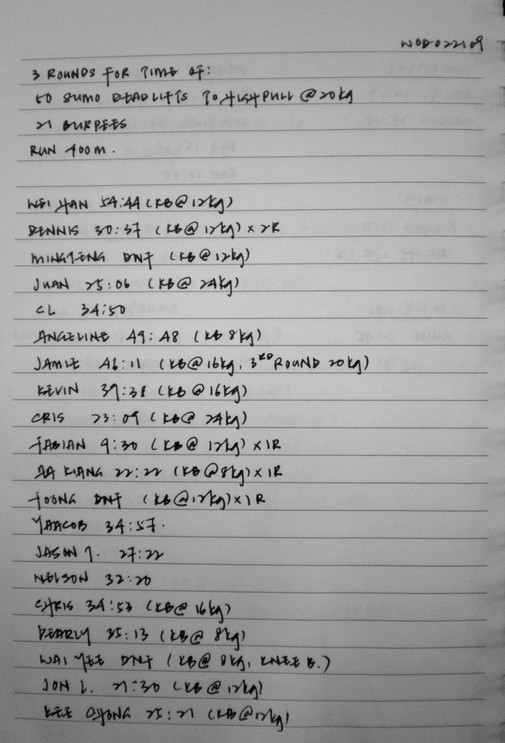 WOD 022109
3 ROUNDS FOR TIME OF:
50 SUMO DEADLIFTS TO HIGHPULL @ 20kg
21 BURPEES
RUN 400M.
WEI HAN 54:44 (KB@12kg)
DENNIS 30:37 (KB@12kg) x 2R
MINGTENG DNF (KB@12kg)
JUAN 25:06 (KB@24kg)
CL 34:50
ANGELINE 49:48 (KB 8kg)
JAMIE 46:11 (KB@16kg, 3RD ROUND 20kg)
KEVIN 39:38 (KB@16kg)
CRIS 23:09 (KB@ 24kg)
FABIAN 9:30 (KB@ 12kg) x 1R
AA KIANG 22:22 (KB@8kg) x 1R
FOONG DNF (KB@12kg) x 1R
YAACOB 34:57.
JASON 27:22
NELSON 32:20
CHRIS 34:53 (KB@16kg)
PEARLY 35:13 (KB@ 8kg)
WAI YEE DNF (KB@ 8kg, KNEE B.)
JON L. 21:30 (KB@12kg)
KEE CHONG 25:21 (KB@12kg)